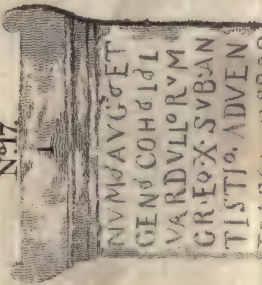 No 17
1
NVM·AVG·ET
GEN·COH·I·L
VARDVLLORVM
GR·EQ·X·SVB·AN
TISTIO·ADVEN